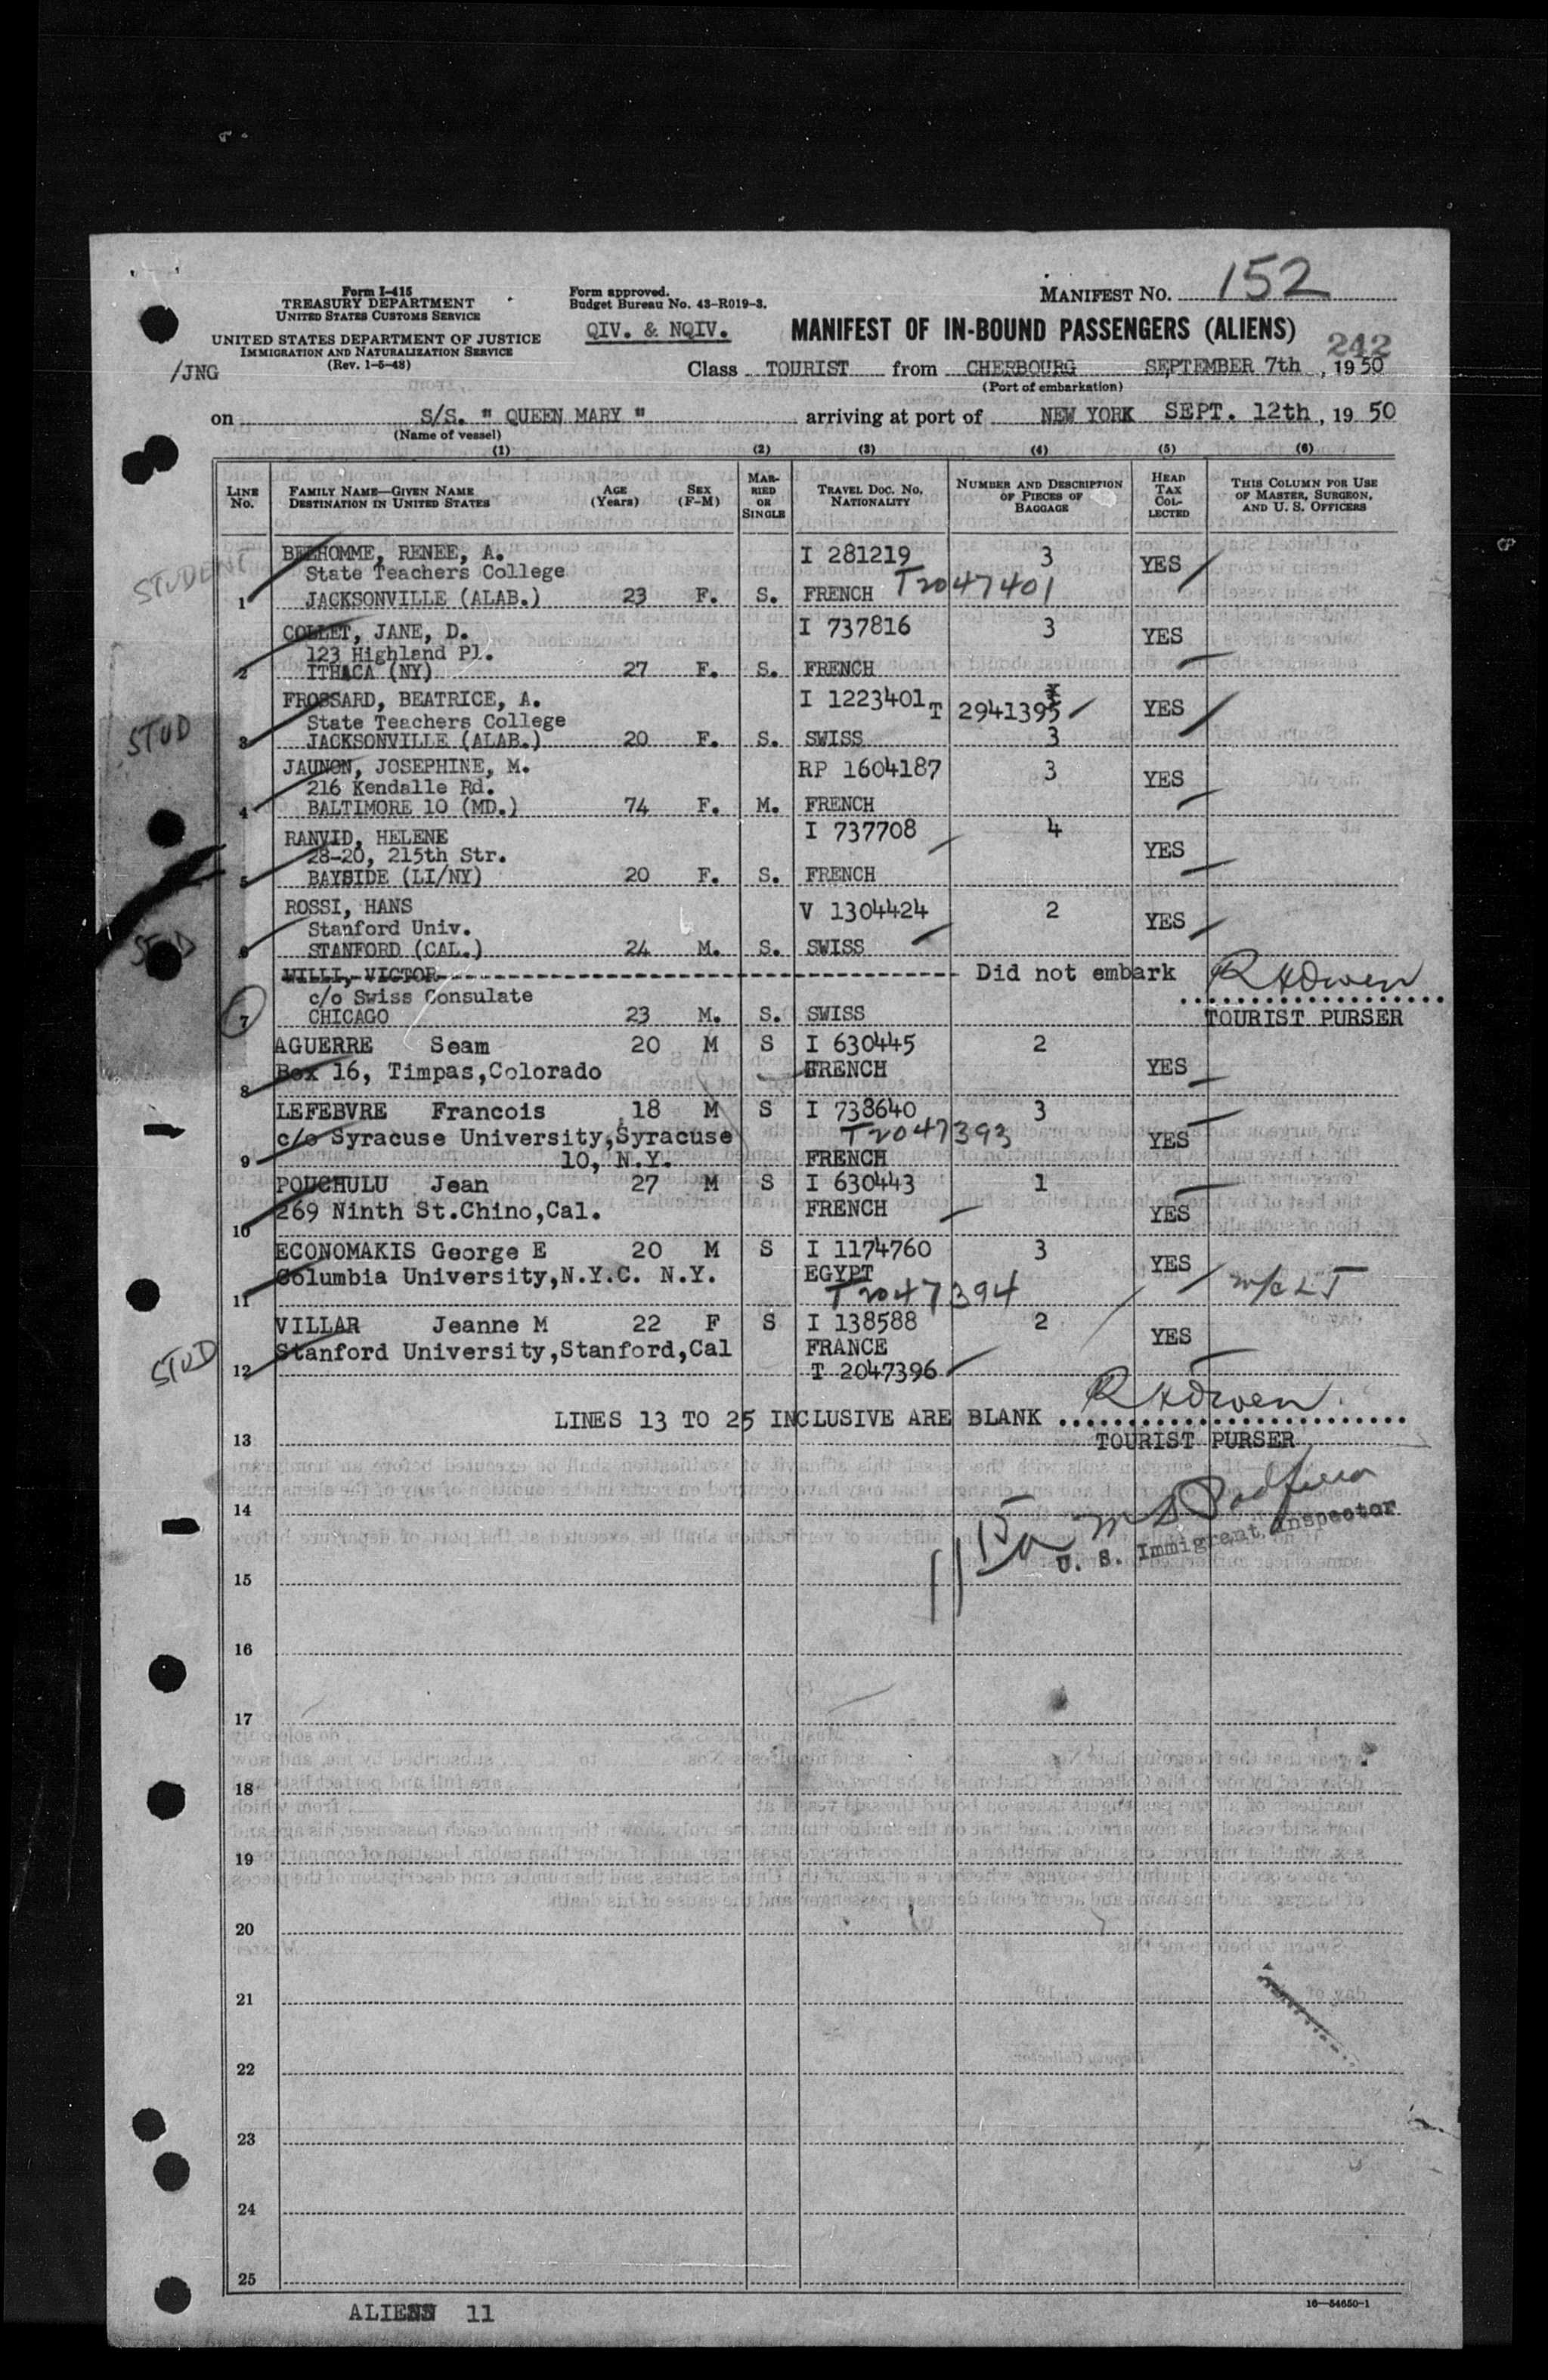 Form I-415
TREASURY DEPARTMENT
UNITED STATES CUSTOMS SERVICE
UNITED STATES DEPARTMENT OF JUSTICE
IMMIGRATION AND NATURALIZATION SERVICE
(Rev. 1-5-48)
/JNG
Form approved.
Budget Bureau No. 43-R019-3.
QIV. & NQIV.
MANIFEST NO. 152
MANIFEST OF IN-BOUND PASSENGERS (ALIENS)
242
Class TOURIST from CHERBOURG SEPTEMBER 7th, 1950
(Port of embarkation)
on S/S. " QUEEN MARY " arriving at port of NEW YORK SEPT. 12th, 1950
(Name of vessel)
(1) (2) (3) (4) (5) (6)
LINE NO.
FAMILY NAME—GIVEN NAME
DESTINATION IN UNITED STATES
AGE (Years)
SEX (F-M)
MARRIED OR SINGLE
TRAVEL DOC. NO. NATIONALITY
NUMBER AND DESCRIPTION OF PIECES OF BAGGAGE
HEAD TAX COLLECTED
THIS COLUMN FOR USE OF MASTER, SURGEON, AND U. S. OFFICERS
STUDENT
BELHOMME, RENEE, A. I 281219 3 YES
State Teachers College T2047401
1 JACKSONVILLE (ALAB.) 23 F. S. FRENCH
COLLET, JANE, D. I 737816 3 YES
123 Highland Pl.
2 ITHACA (NY) 27 F. S. FRENCH
FROSSARD, BEATRICE, A. I 1223401 T 2941395 YES
STUD State Teachers College
3 JACKSONVILLE (ALAB.) 20 F. S. SWISS 3
JAUNON, JOSEPHINE, M. RP 1604187 3 YES
216 Kendalle Rd.
4 BALTIMORE 10 (MD.) 74 F. M. FRENCH
RANVID, HELENE I 737708 4 YES
28-20, 215th Str.
5 BAYSIDE (LI/NY) 20 F. S. FRENCH
ROSSI, HANS V 1304424 2 YES
STUD Stanford Univ.
6 STANFORD (CAL.) 24 M. S. SWISS
WILLI, VICTOR Did not embark RHOwen
c/o Swiss Consulate
7 CHICAGO 23 M. S. SWISS TOURIST PURSER
AGUERRE Seam 20 M S I 630445 2 YES
8 Box 16, Timpas,Colorado FRENCH
LEFEBVRE Francois 18 M S I 738640 3 YES
c/o Syracuse University,Syracuse T2047393
9 10, N.Y. FRENCH
POUCHULU Jean 27 M S I 630443 1 YES
269 Ninth St.Chino,Cal. FRENCH
10
ECONOMAKIS George E 20 M S I 1174760 3 YES
Columbia University,N.Y.C. N.Y. EGYPT
11 T2047394
VILLAR Jeanne M 22 F S I 138588 2 YES
STUD Stanford University,Stanford,Cal FRANCE
12 T 2047396
LINES 13 TO 25 INCLUSIVE ARE BLANK RHOwen
13 TOURIST PURSER
14
U. S. Immigrant Inspector
15
16
17
18
19
20
21
22
23
24
25
ALIENS 11
16—54650-1